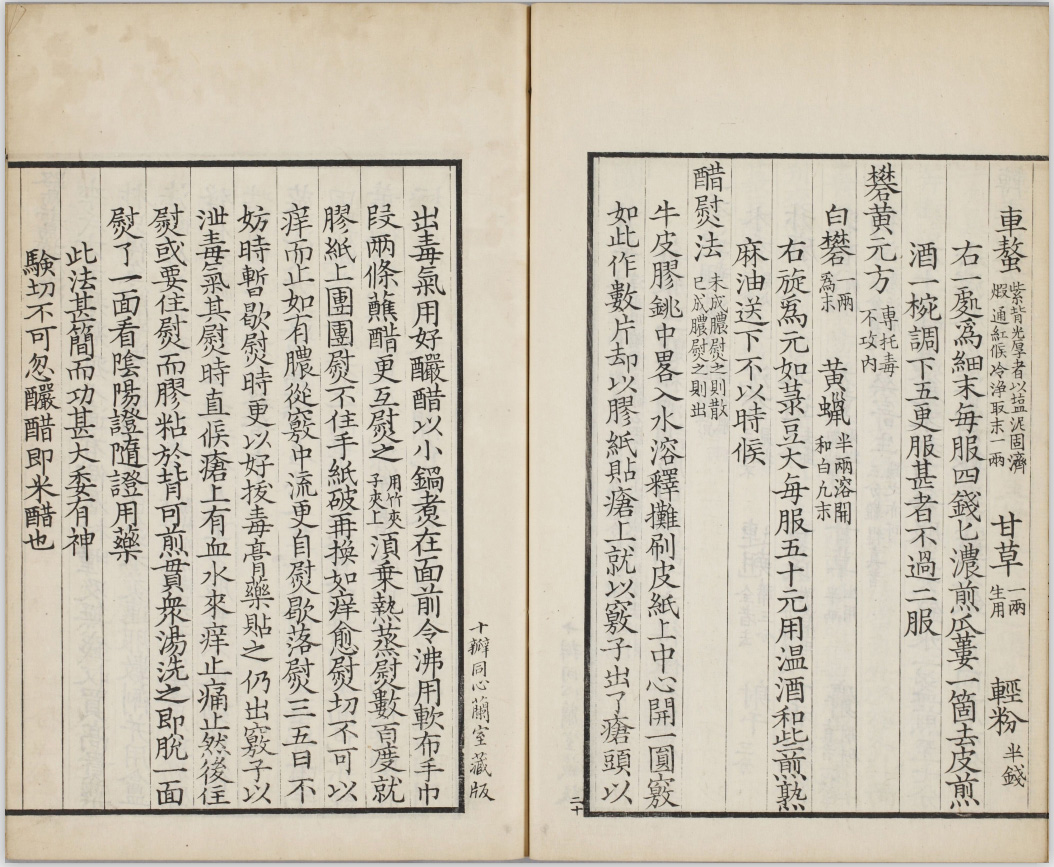 車螯 紫背光厚者以塩泥固濟煆通紅候冷浄取末一兩 甘草 一兩生用 輕粉 半錢
右一處爲細末每服四錢匕濃煎瓜蔞一箇去皮煎
酒一椀調下五更服甚者不過二服
礬黃元方 専托毒不攻内
白礬 一兩爲末 黄蠟 半兩溶開和白凡末
右旋爲元如菉豆大每服五十元用温酒和些煎熟
麻油送下不以時候
醋熨法 未成膿熨之則散已成膿熨之則出
牛皮膠銚中畧入水溶釋攤刷皮紙上中心開一圓竅
如此作數片却以膠紙貼瘡上就以竅子出了瘡頭以
二十
十瓣同心蘭室藏版
出毒氣用好釅醋以小鍋煑在面前令沸用軟布手巾
叚兩條蘸醋更互熨之 用竹夾子夾上 湏乗熱蒸熨數百度就
膠紙上團團熨不住手紙破再換如痒愈熨切不可以
痒而止如有膿從竅中流更自熨歇落熨三五日不
妨時暫歇熨時更以好拔毒膏藥貼之仍出竅子以
泄毒氣其熨時直候瘡上有血水來痒止痛止然後住
熨或要住熨而膠粘於背可煎貫衆湯洗之即脫一面
熨了一面看陰陽證隨證用藥
此法甚簡而功甚大委有神
験切不可忽釅醋即米醋也